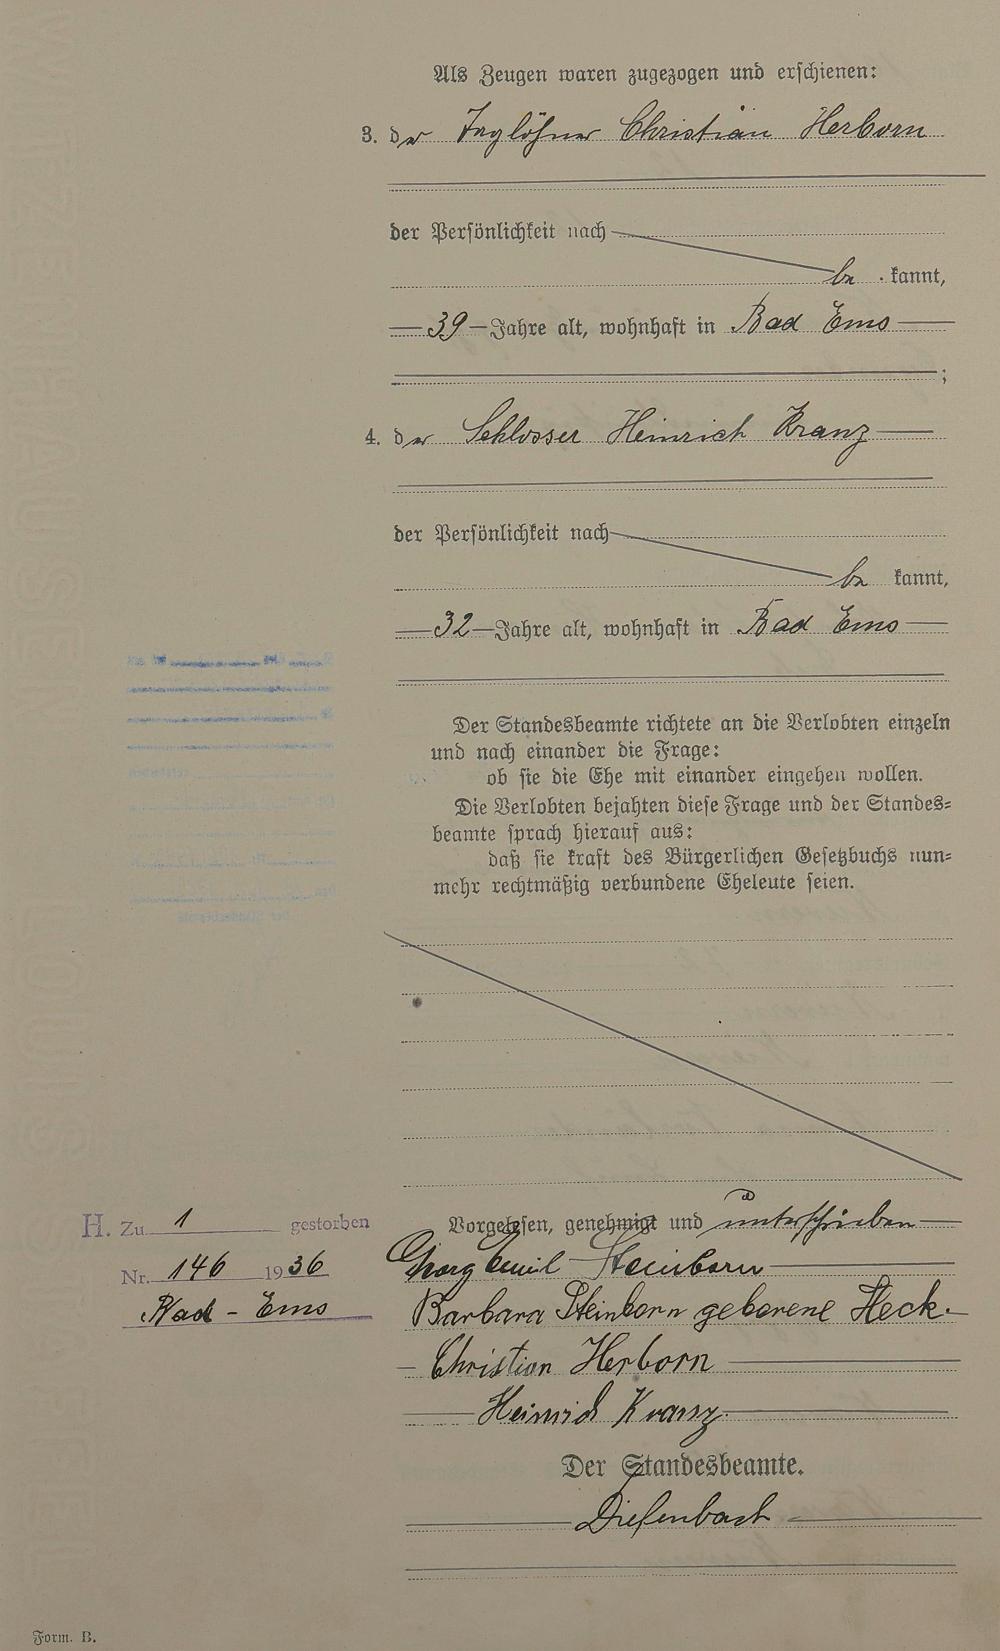 Als Zeugen waren zugezogen und erschienen:
3. der Taglöhner Christian Herborn
der Persönlichkeit nach
be kannt,
39 Jahre alt, wohnhaft in Bad Ems
;
4. der Schlosser Heinrich Kranz
der Persönlichkeit nach
be kannt,
32 Jahre alt, wohnhaft in Bad Ems
Der Standesbeamte richtete an die Verlobten einzeln
und nach einander die Frage:
ob sie die Ehe mit einander eingehen wollen.
Die Verlobten bejahten diese Frage und der Standes-
beamte sprach hierauf aus:
daß sie kraft des Bürgerlichen Gesetzbuchs nun-
mehr rechtmäßig verbundene Eheleute seien.
H. Zu 1 gestorben
Nr. 146 1936
Bad - Ems
Vorgelesen, genehmigt und unterschrieben
Georg Emil Steinborn
Barbara Steinborn geborene Heck.
Christian Herborn
Heinrich Kranz
Der Standesbeamte.
Diefenbach
Form. B.